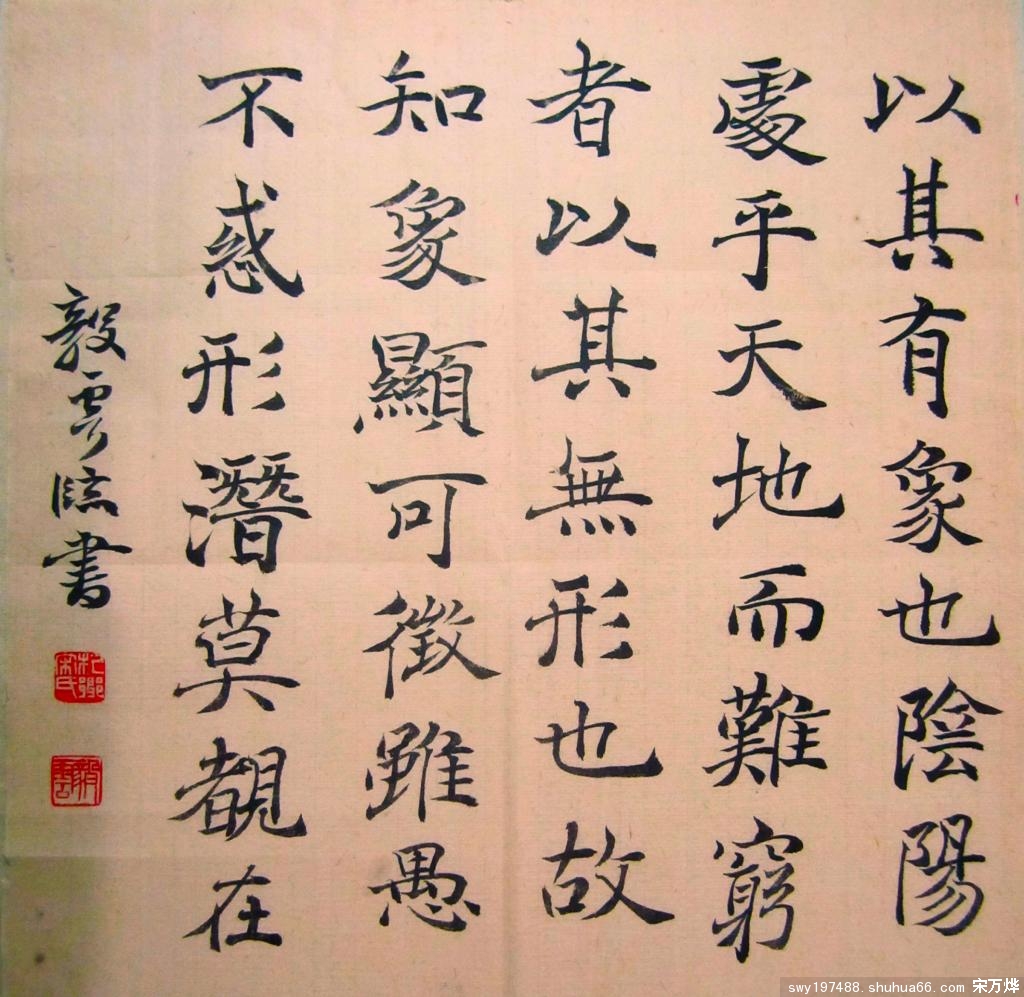 以其有象也陰陽
處乎天地而難窮
者以其無形也故
知象顯可徵雖愚
不惑形潛莫覩在
毅雲臨書
swy197488.shuhua66.com 宋万烨